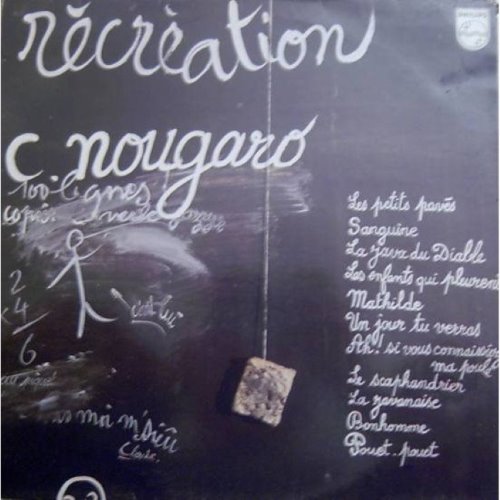 PHILIPS
récrèation
c. nougaro
100 lignes
copier
2
x 4
6
c'est lui
moi m'sieu
Claude.
Les petits pavés
Sanguine
La java du Diable
Les enfants qui pleurent
Mathilde
Un jour tu verras
Ah! si vous connaissiez
ma poule
Le scaphandrier
La javanaise
Bonhomme
Pouet.. pouet